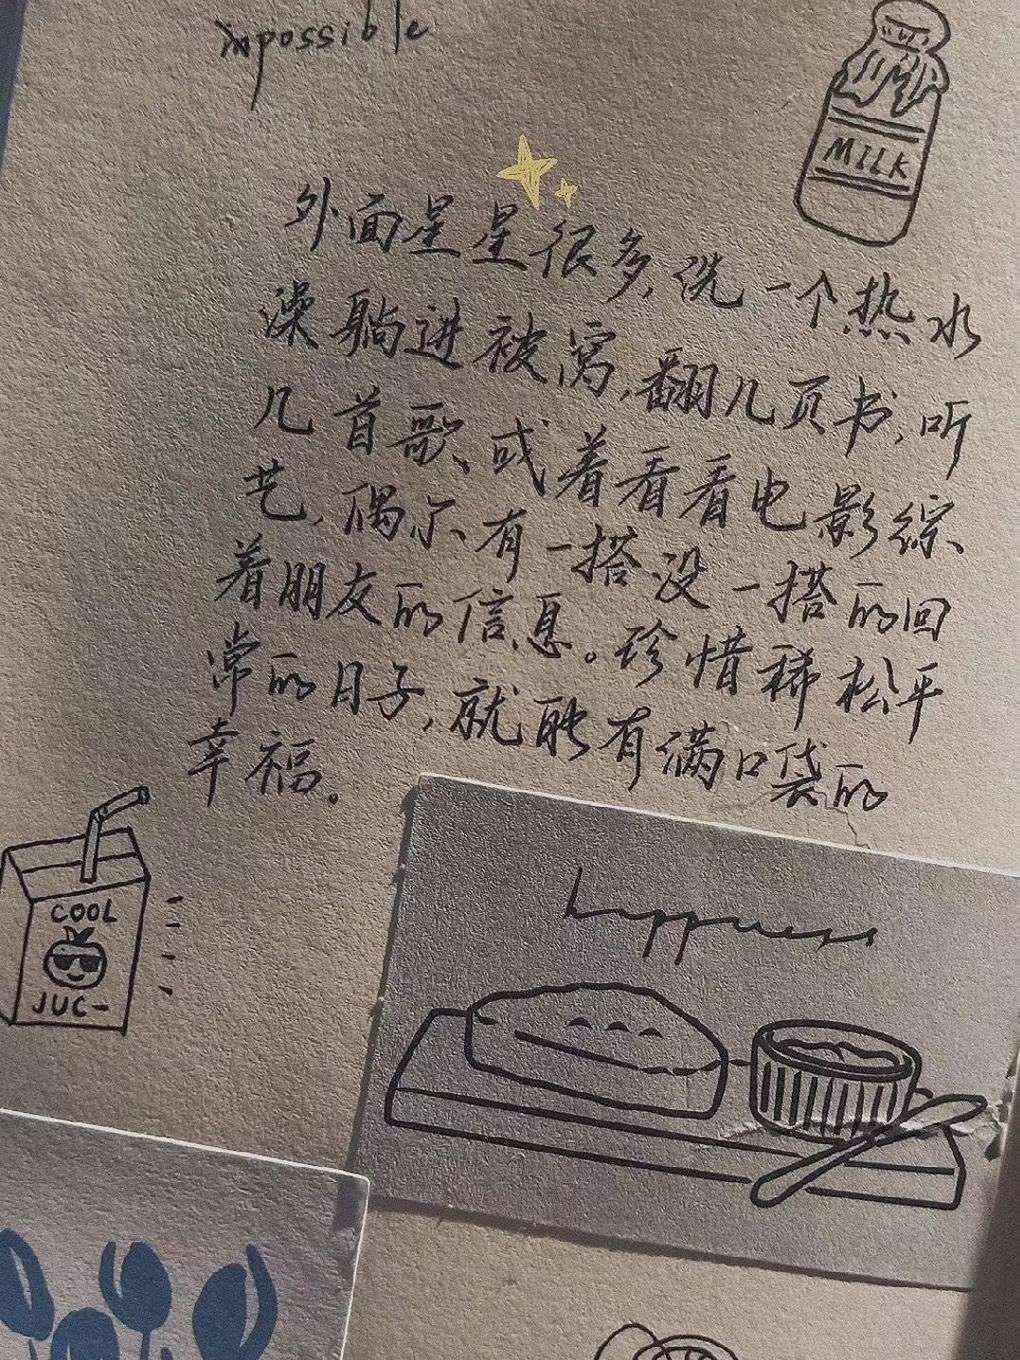 impossible
MILK
外面星星很多,洗一个热水
澡躺进被窝,翻几页书,听
几首歌、或着看看电影综
艺,偶尔有一搭没一搭的回
着朋友的信息。珍惜稀松平
常的日子,就能有满口袋的
幸福。
COOL
JUC-
happiness